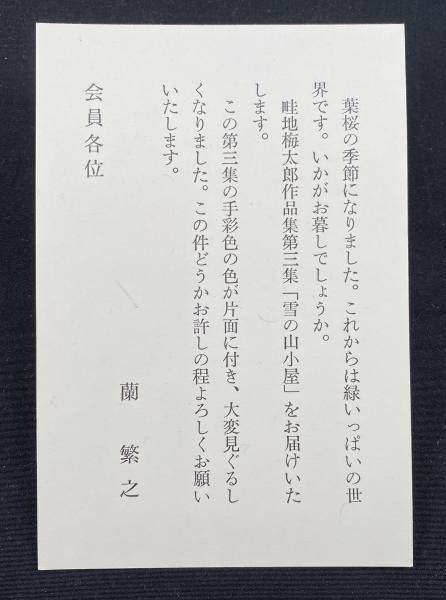 葉桜の季節になりました。これからは緑いっぱいの世
界です。いかがお暮しでしょうか。
畦地梅太郎作品集第三集「雪の山小屋」をお届けいた
します。
この第三集の手彩色の色が片面に付き、大変見ぐるし
くなりました。この件どうかお許しの程よろしくお願い
いたします。
蘭繁之
会員各位